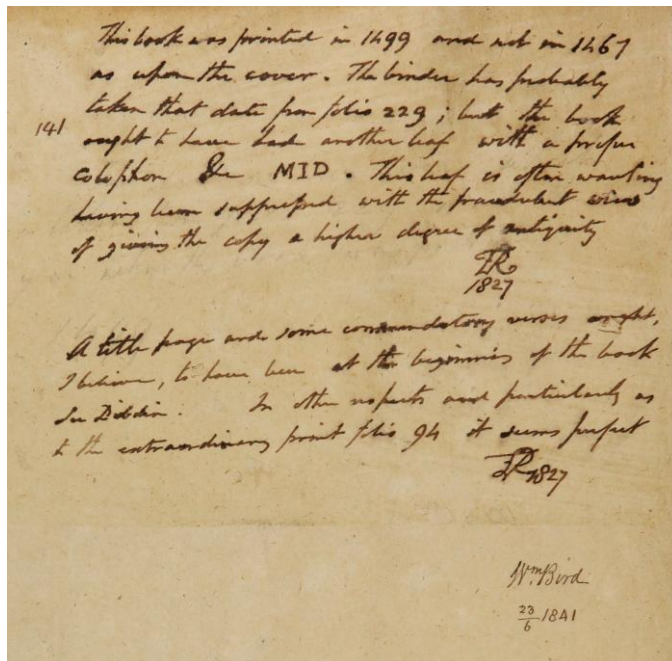 This book was printed in 1499 and not in 1467
as upon the cover. The binder has probably
taken that date from folio 229; but the book
141
ought to have had another leaf with a proper
colophon &c MID. This leaf is often wanting
having been suppressed with the fraudulent view
of giving the copy a higher degree of antiquity
1827
A title page and some commendatory verses ought,
I believe, to have been at the beginning of the book
See Dibdin. In other respects and particularly as
to the extraordinary print folio 94 it seems perfect
1827
Wm Bird
23/6 1841